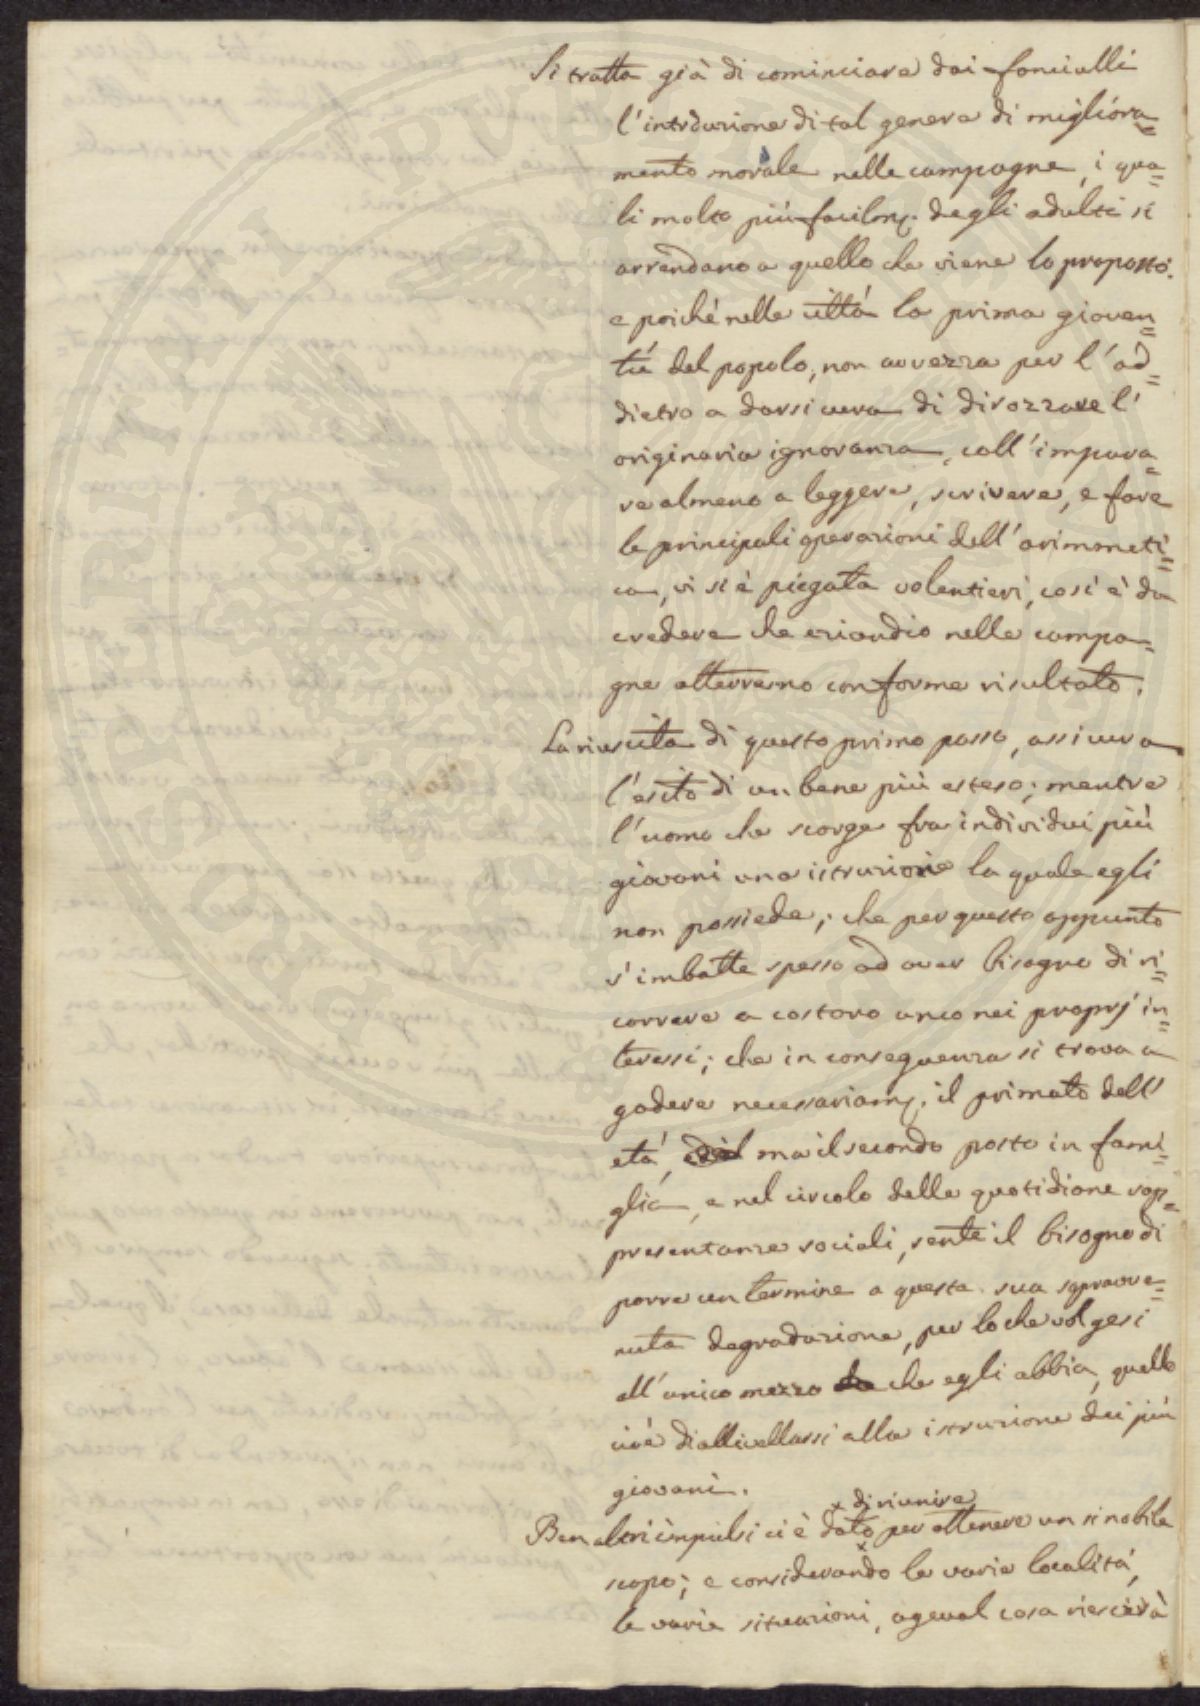 Si tratta già di cominciare dai fanciulli
l'introduzione di tal genere di migliora=
mento morale nelle campagne, i qua=
li molto più facilm. degli adulti si
arrendano a quello che viene lo proposto.
e poichè nelle città la prima gioven=
tù del popolo, non avvezza per l'ad=
dietro a darsi cura di dirozzare l'
originaria ignoranza, coll'impara=
re almeno a leggere, scrivere, e fare
le principali operazioni dell'arimmeti=
ca, vi si è piegata volentieri, così è da
credere che eziandio nelle campa=
gne otterremo conforme risultato.
La riuscita di questo primo passo, assicura
l'esito di un bene più esteso; mentre
l'uomo che scorge fra individui più
giovani una istruzione la quale egli
non possiede; che per questo appunto
s'imbatte spesso ad aver bisogno di ri=
correre a costoro anco nei proprj in=
teressi; che in conseguenza si trova a
godere necessariam. il primato dell'
età, ma il secondo posto in fami=
glia, e nel circolo delle quotidiane rap=
presentanze sociali, sente il bisogno di
porre un termine a questa sua sopravve=
nuta degradazione, per lo che volgesi
all'unico mezzo che egli abbia, quello
cioè di allivellarsi alla istruzione dei più
giovani.
x di riunire
Ben altri impulsi ci è dato x per ottenere un sì nobile
scopo; e considerando le varie località,
le varie situazioni, agevol cosa riescirà